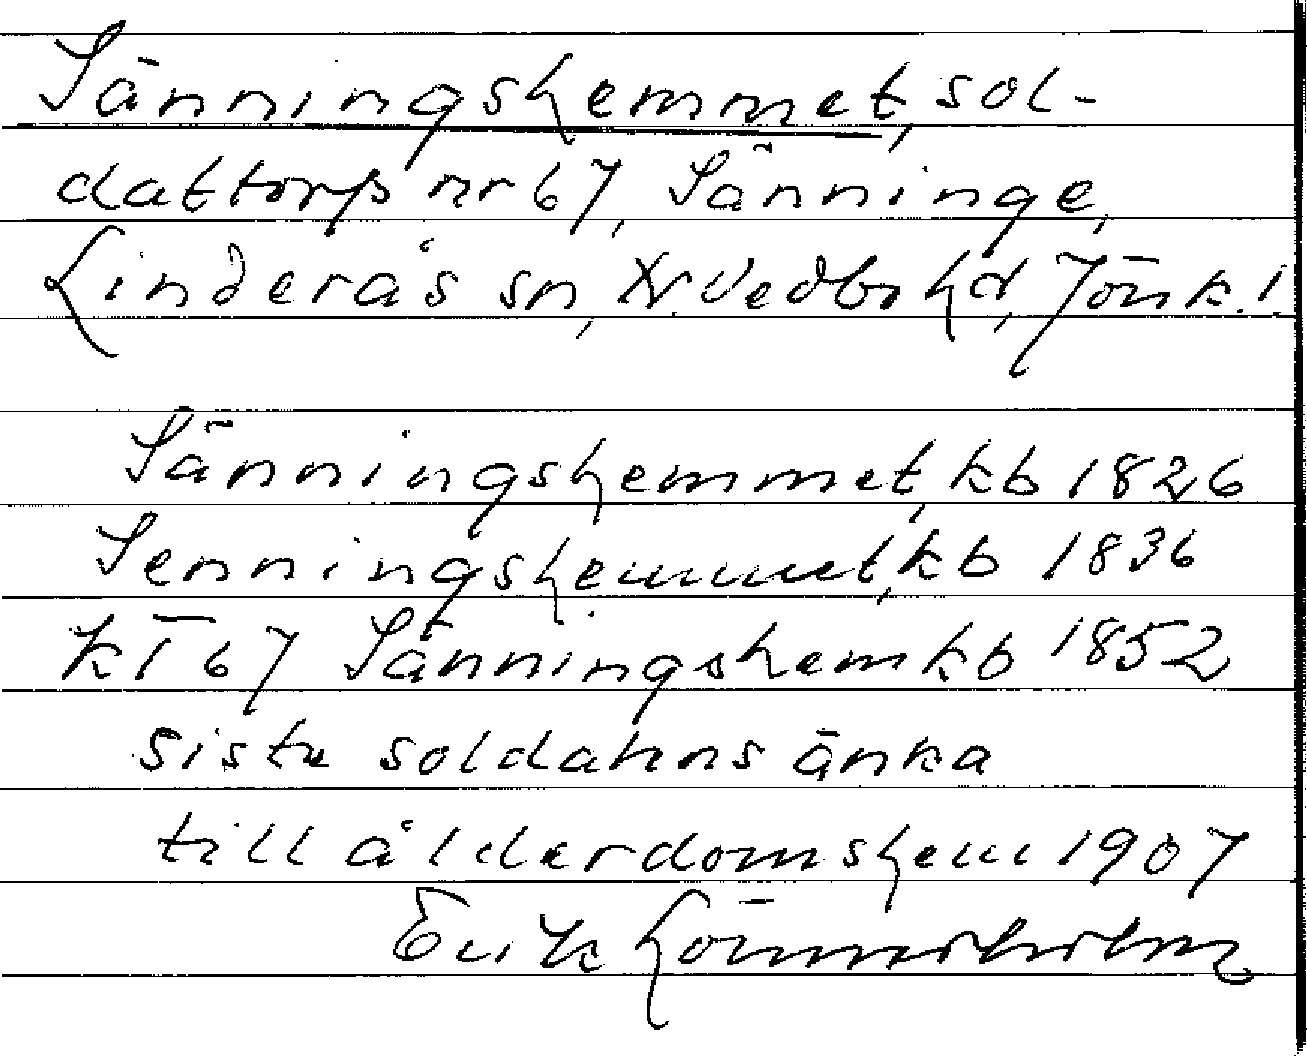 Sänningshemmet, sol-
dattorp nr 67, Sänninge,
Linderås sn, N. Vedbo hd, Jönk. l.
Sänningshemmet, kb 1826
Senningshemmet, kb 1836
KT 67 Sänningshem kb 1852
Sista soldatens änka
till ålderdomshem 1907
Erik Lönnerholm